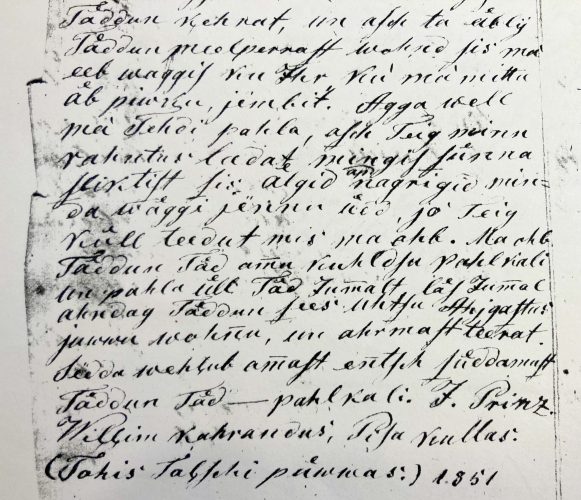 Täddun kehrat, un assk ta äb ly
Täddun meelperrast wohnd sis ma
eeb waggis ku Ihr kui ma mittu
äb püwwu, jembit. Agga well
ma Tehdi pahla, assk Teig minn
rahutus ludat mingis sünna
slixtist sis älgid and nagrigid min-
da wäggi jennu üöd, jo Teig
küll teedut mis ma ohb. Ma ohb
Täddun Täd am̄u kuhldsu pahlkali
un pahlu ült Täd Jum̄alt läs Jum̄al
ahndag Täddun sees uhtsu Ahjgastus
jauwu wohn̄u, un ahrmast teerat.
Sedda wehlub am̄ast en̄tsh süddamast
Täddun Täd — pahlkali. J. Prinz.
Willjim Kahrandus, Pisu kullas.
(Tohis Tabschi püwwas.) 1851